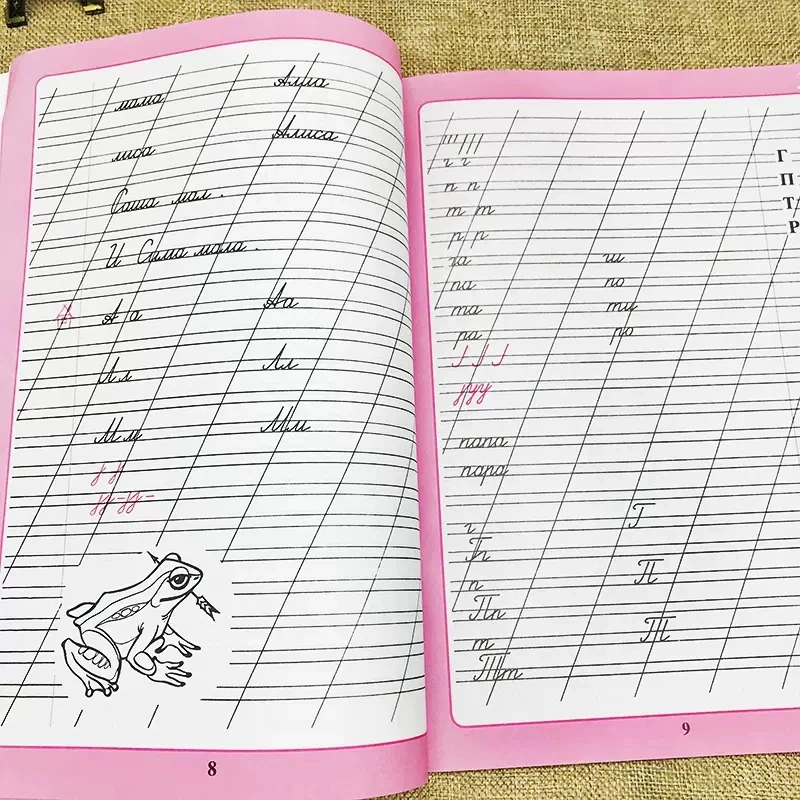 мама Алла
лиса Алиса
Саша мал.
И Сима мала.
А а Аа
Л л Лл
М м Мм
8
г г
п п
т т
р р
га ги
па по
та ти
ра ро
Г
П
Р
папа
пара
г Г
Гг
п П
Пп
т Т
Тт
9